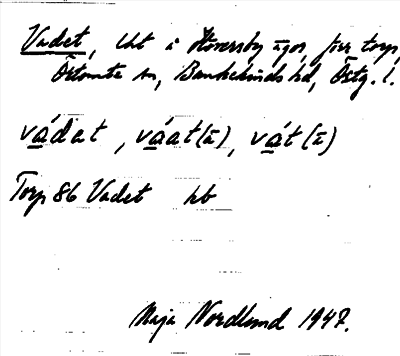 Vadet, lht å Hoversby ägor, förr torp,
Örtomta sn, Bankekinds hd, Östg. l.
vádat, váat(ä), vát(ä)
Torp 86 Vadet hb
Maja Nordlund 1947.